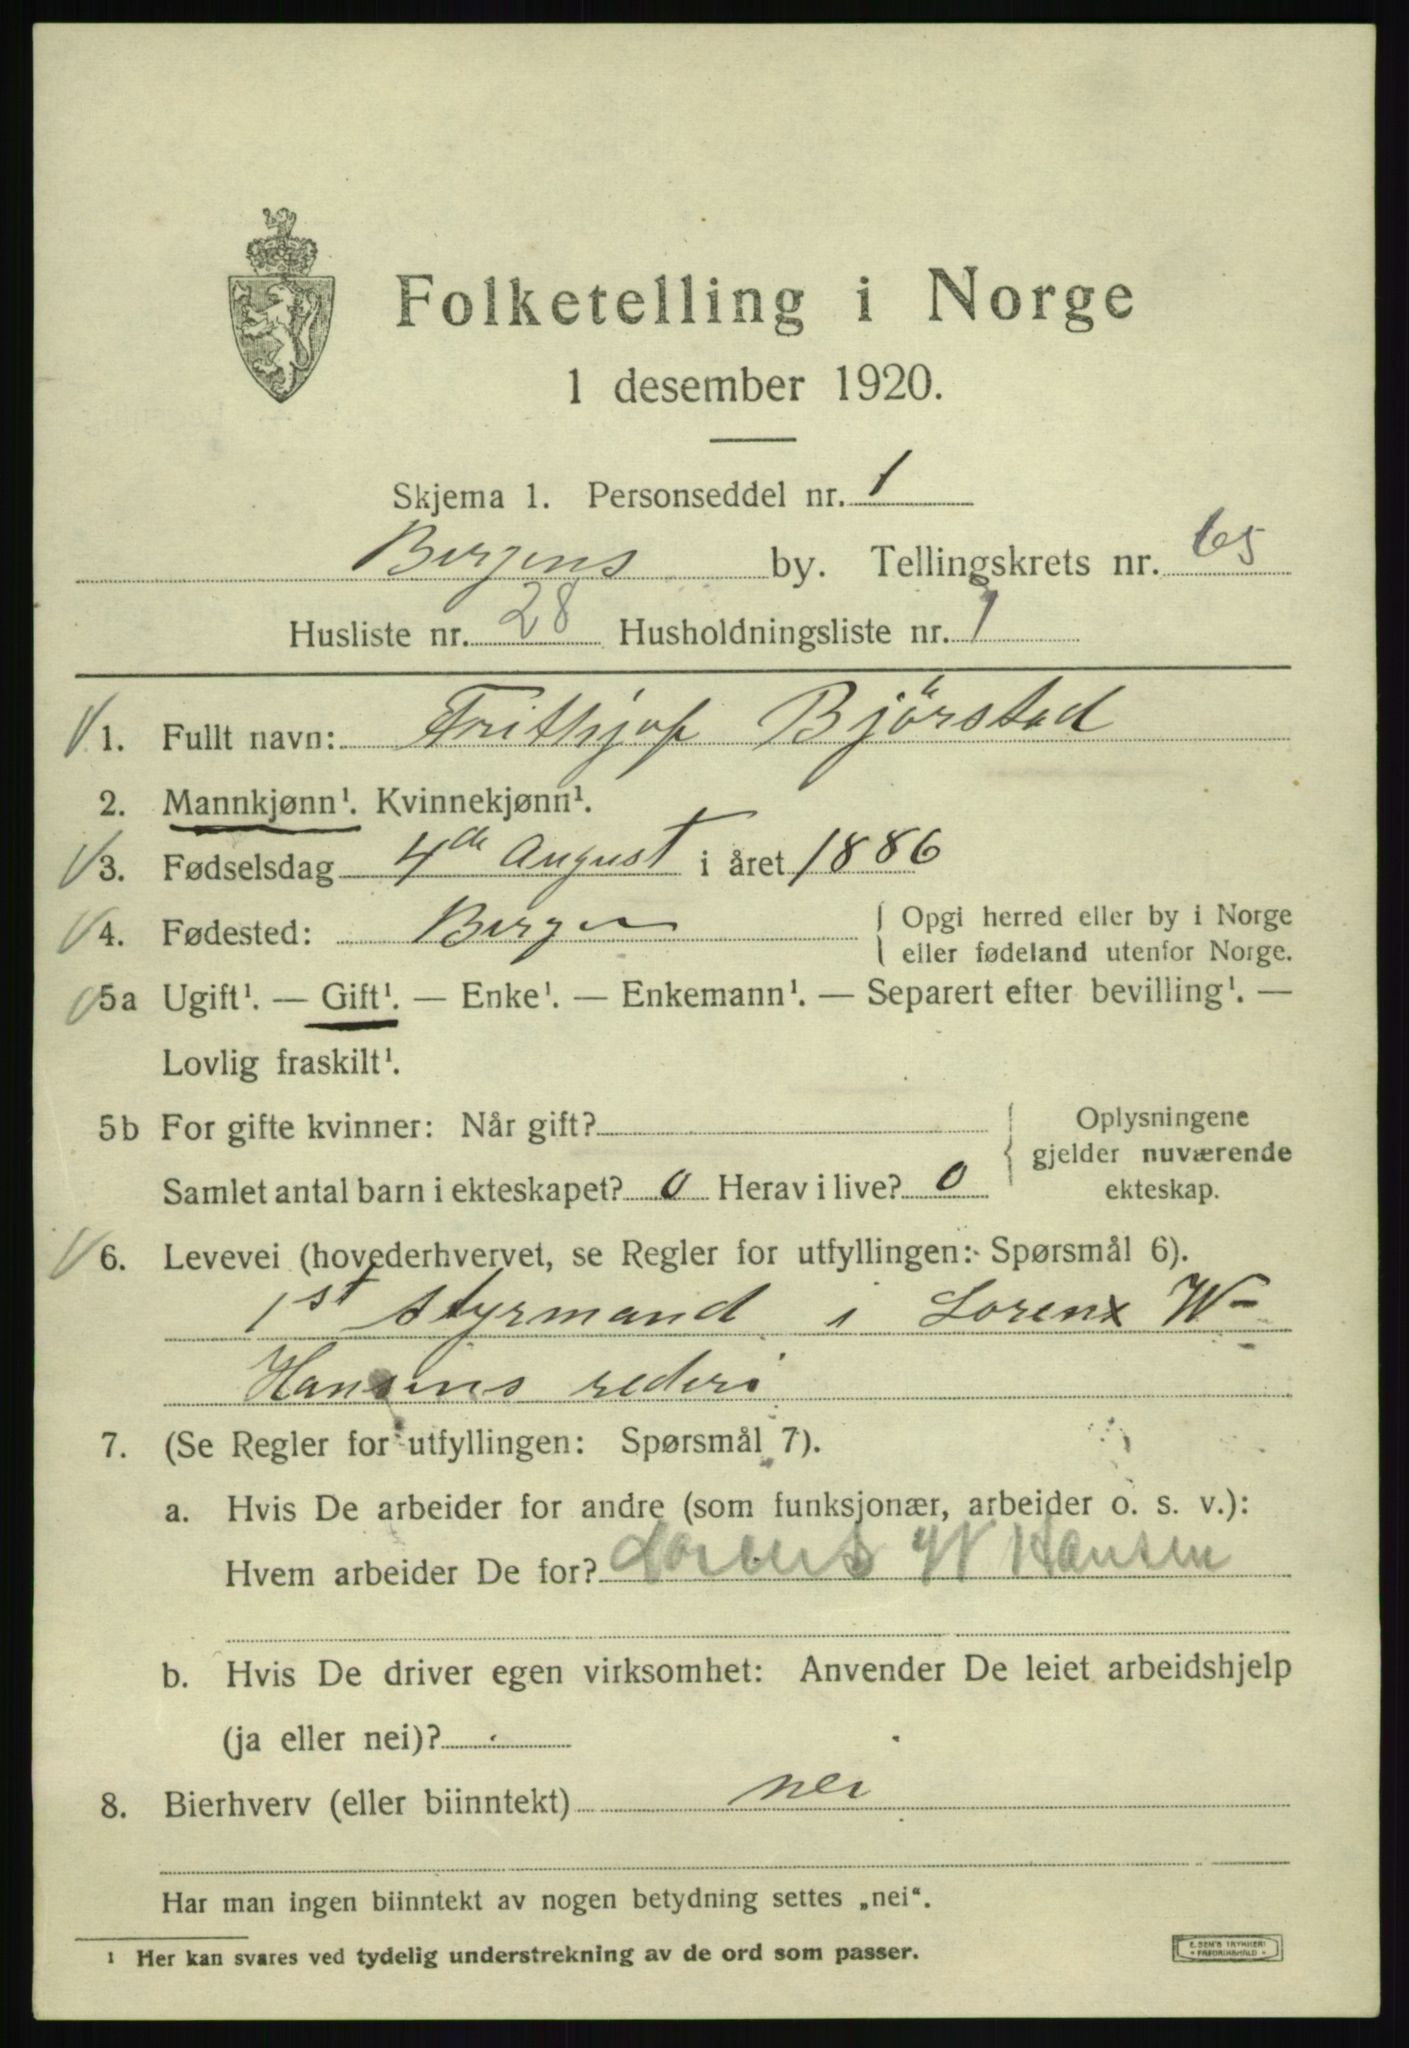 Folketelling i Norge
1 desember 1920.
Skjema 1. Personseddel nr. 1
Bergens by. Tellingskrets nr. 65
Husliste nr. 28 Husholdningsliste nr. 1
1. Fullt navn: Frithjof Björstad
2. Mannkjønn¹. Kvinnekjønn¹.
3. Fødselsdag 4de August i året 1886
4. Fødested: Bergen { Opgi herred eller by i Norge
eller fødeland utenfor Norge.
5a Ugift¹. — Gift¹. — Enke¹. — Enkemann¹. — Separert efter bevilling¹. —
Lovlig fraskilt¹.
5b For gifte kvinner: Når gift? { Oplysningene
gjelder nuværende
Samlet antal barn i ekteskapet? 0 Herav i live? 0 ekteskap.
6. Levevei (hovederhvervet, se Regler for utfyllingen: Spørsmål 6).
1st styrmand i Lorenx W–
Hansens rederi
7. (Se Regler for utfyllingen: Spørsmål 7).
a. Hvis De arbeider for andre (som funksjonær, arbeider o. s. v.):
Hvem arbeider De for? Lorents W Hansen
b. Hvis De driver egen virksomhet: Anvender De leiet arbeidshjelp
(ja eller nei)?
8. Bierhverv (eller biinntekt) nei
Har man ingen biinntekt av nogen betydning settes „nei“.
1 Her kan svares ved tydelig understrekning av de ord som passer.
E. SEM'S TRYKKERI
FREDRIKSHALD